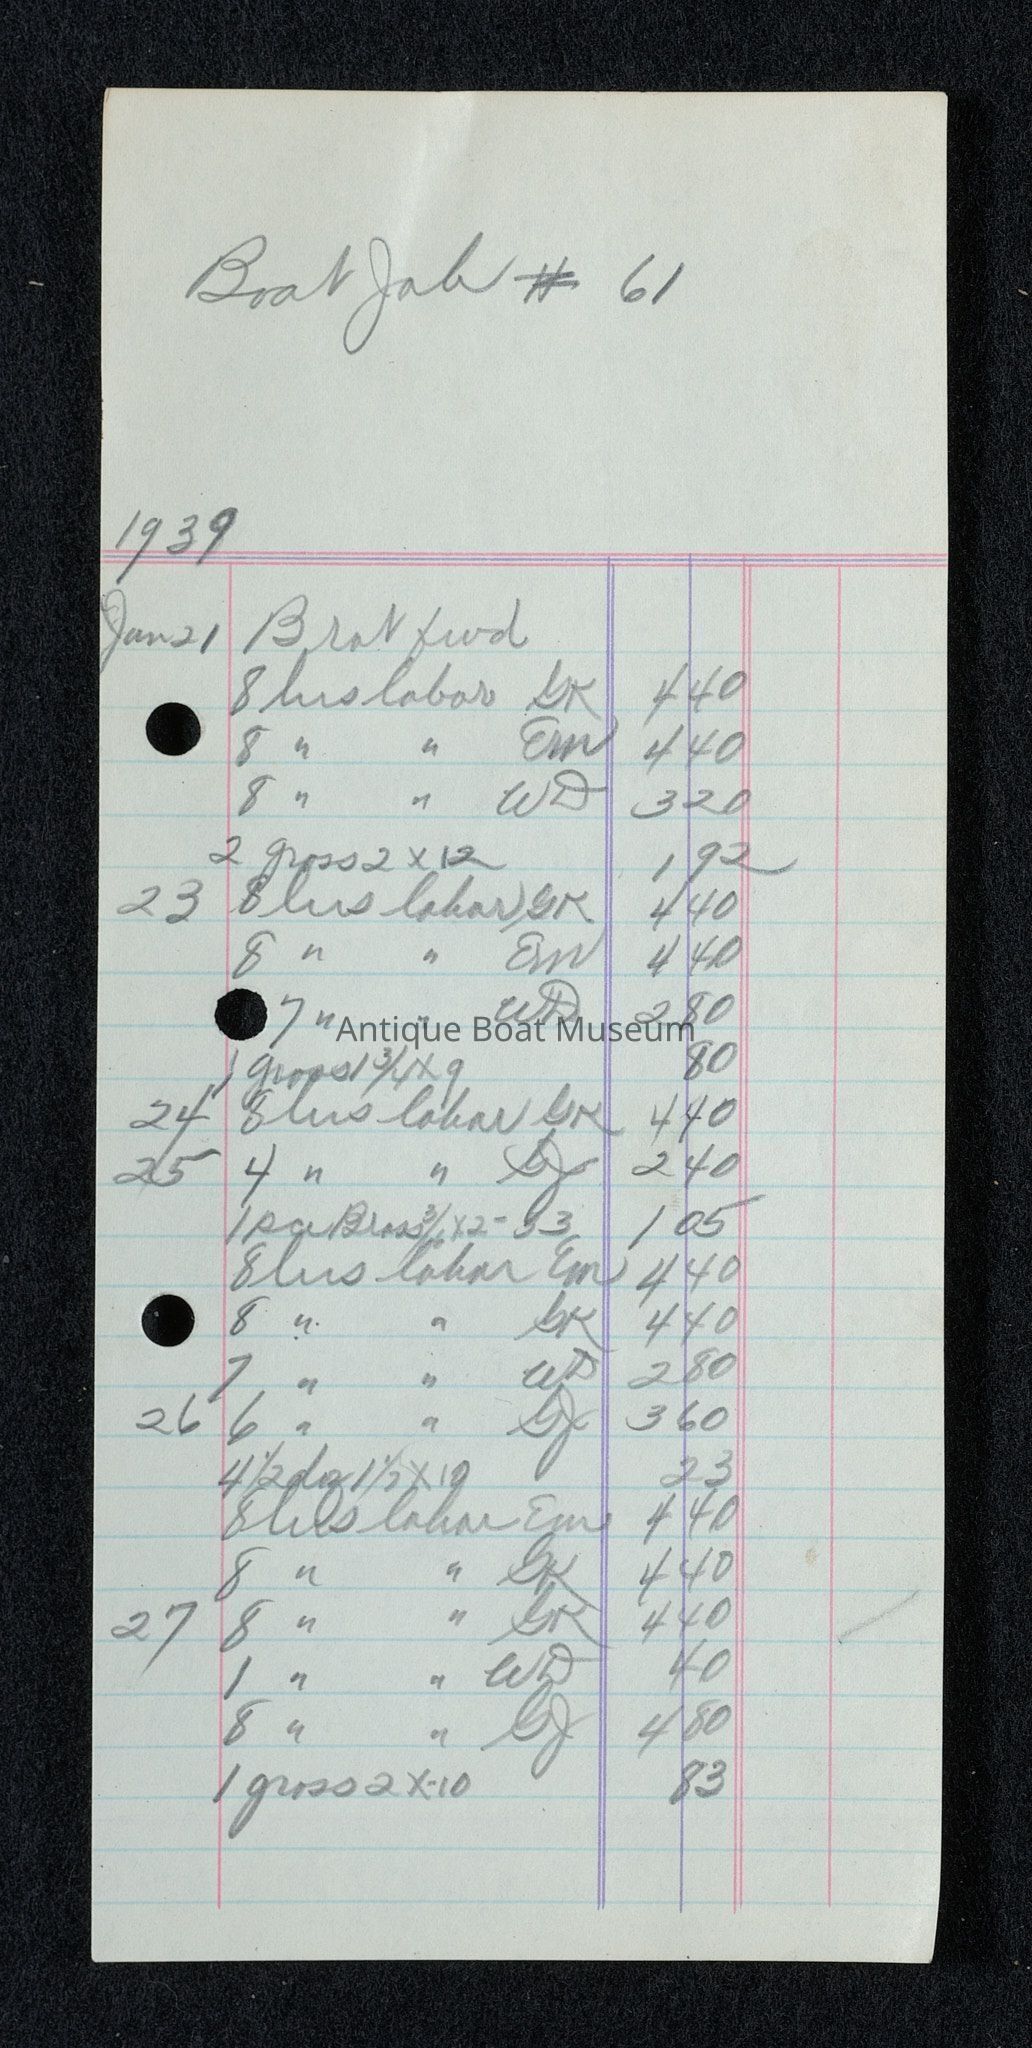 Boat Job # 61
1939
Jan 21 Brot fwd
8 hrs labor GK 4 40
8 " " Em 4 40
8 " " WD 3 20
2 gross 2 x 12 1 92
23 8 hrs labor GK 4 40
8 " " Em 4 40
7 " " WD 2 80
Antique Boat Museum
1 gross 1 3/4 x 9 80
24 8 hrs labor GK 4 40
25 4 " " GJ 2 40
1 pce Brass x 2 - 33 1 05
8 hrs labor Em 4 40
8 " " GK 4 40
7 " " WD 2 80
26 6 " " GJ 3 60
4 1/2 dz 1 1/2 x 10 23
8 hrs labor Em 4 40
8 " " GK 4 40
27 8 " " GK 4 40
1 " " WD 40
8 " " GJ 4 80
1 gross 2 x 10 83